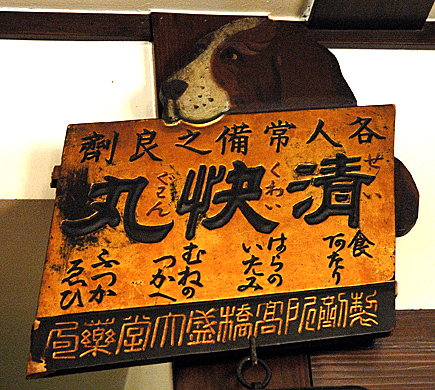 各人常備之良劑
清快丸
せい くわい ぐわん
食あたり
はらのいたみ
むねのつかへ
ふつかゑひ
阪高橋盛大堂藥